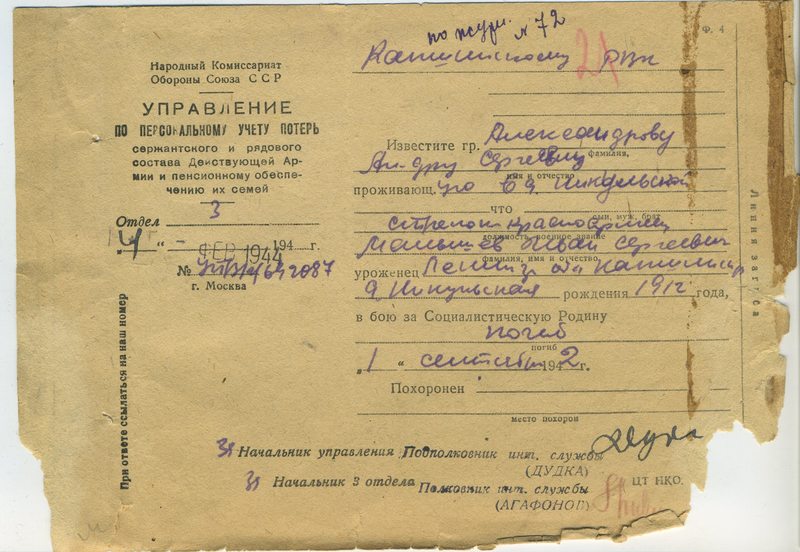 по журн. № 72
РВК
Ф. 4
Народный Комиссариат
Обороны Союза ССР
УПРАВЛЕНИЕ
ПО ПЕРСОНАЛЬНОМУ УЧЕТУ ПОТЕРЬ
сержантского и рядового
состава Действующей Ар-
мии и пенсионному обеспе-
чению их семей
Отдел 3
"4" ФЕВ 1944 194 г.
№
г. Москва
При ответе ссылаться на наш номер
Известите гр. Александрову
фамилия,
Сергеевну
имя и отчество
проживающ. по Никульской
что
сын, муж, брат,
стрелок красноармеец
должность, военное звание
Иван Сергеевич
фамилия, имя и отчество
уроженец
д Никульская рождения 1912 года,
в бою за Социалистическую Родину
погиб
погиб
"1" сентября 1942 г.
Похоронен
место похорон
Зп Начальник управления Подполковник инт. службы
(ДУДКА)
Зп Начальник 3 отдела Полковник инт. службы
(АГАФОНОВ)
ЦТ НКО.
Дудка
Линия загиба